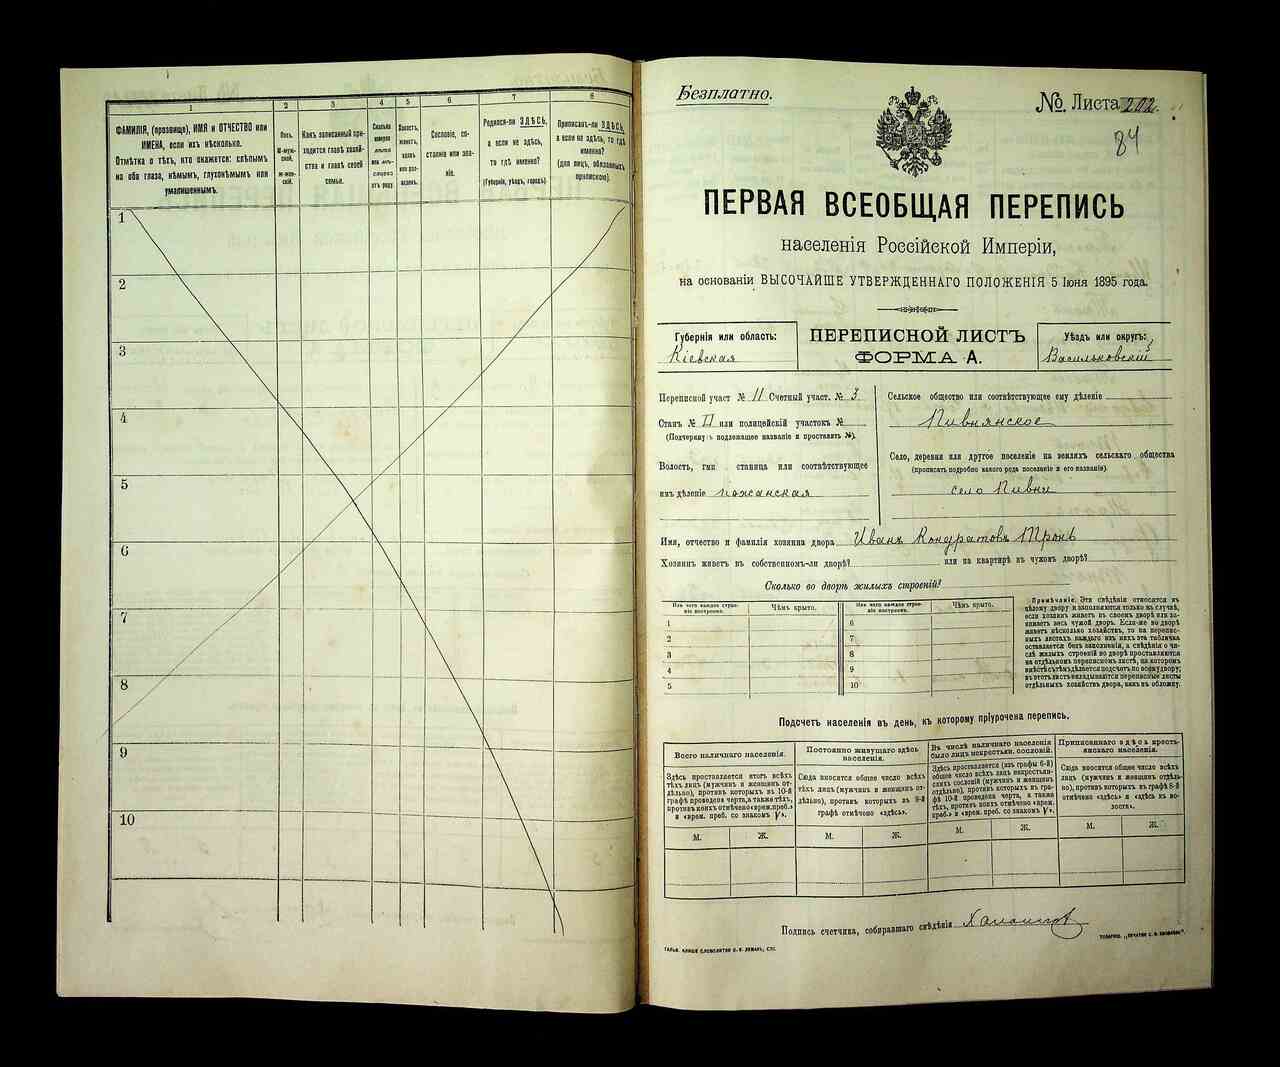 1
2
3
4
5
6
7
8
ФАМИЛІЯ, (прозвище), ИМЯ и ОТЧЕСТВО или
ИМЕНА, если ихъ нѣсколько.
Отмѣтка о тѣхъ, кто окажется: слѣпымъ
на оба глаза, нѣмымъ, глухонѣмымъ или
умалишеннымъ.
Полъ.
М-муж-
ской.
Ж-жен-
скій.
Какъ записанный при-
ходится главѣ хозяй-
ства и главѣ своей
семьи.
Сколько
минуло
лѣтъ
или мѣ-
сяцевъ
отъ роду
Холостъ,
женатъ,
вдовъ
или раз-
веденъ.
Сословіе, со-
стояніе или зва-
ніе.
Родился-ли ЗДѢСЬ,
а если не здѣсь,
то гдѣ именно?
(Губернія, уѣздъ, городъ)
Приписанъ-ли ЗДѢСЬ,
а если не здѣсь, то гдѣ
именно?
(для лицъ, обязанныхъ
припискою).
1
2
3
4
5
6
7
8
9
10
Безплатно.
№ Листа 202.
84
ПЕРВАЯ ВСЕОБЩАЯ ПЕРЕПИСЬ
населенія Россійской Имперіи,
на основаніи ВЫСОЧАЙШЕ УТВЕРЖДЕННАГО ПОЛОЖЕНІЯ 5 Іюня 1895 года.
Губернія или область:
Кіевская
ПЕРЕПИСНОЙ ЛИСТЪ
ФОРМА А.
Уѣздъ или округъ:
Васильковскій
Переписной участ № II Счетный участ. № 3
Станъ № II или полицейскій участокъ №
(Подчеркнуть подлежащее названіе и проставить №).
Волость, гмина, станица или соотвѣтствующее
имъ дѣленіе
Сельское общество или соотвѣтствующее ему дѣленіе
Пивнянское
Село, деревня или другое поселеніе на земляхъ сельскаго общества
(прописать подробно какого рода поселеніе и его названіе).
село Пивни
Имя, отчество и фамилія хозяина двора Иванъ Кондратовъ Тронь
Хозяинъ живетъ въ собственномъ-ли дворѣ? или на квартирѣ въ чужомъ дворѣ?
Сколько во дворѣ жилыхъ строеній?
Изъ чего каждое строе-
ніе построено.
Чѣмъ крыто.
1
2
3
4
5
Изъ чего каждое строе-
ніе построено.
Чѣмъ крыто.
6
7
8
9
10
Примѣчаніе. Эти свѣдѣнія относятся къ
цѣлому двору и заполняются только въ случаѣ,
если хозяинъ живетъ въ своемъ дворѣ или за-
нимаетъ весь чужой дворъ. Если-же во дворѣ
живетъ нѣсколько хозяйствъ, то на перепис-
ныхъ листахъ каждаго изъ нихъ эта табличка
оставляется безъ заполненія, а свѣдѣнія о чи-
слѣ жилыхъ строеній во дворѣ проставляются
на отдѣльномъ переписномъ листѣ, на которомъ
вмѣстѣ съ тѣмъ дѣлается подсчетъ по всему двору;
въ этотъ листъ вкладываются переписные листы
отдѣльныхъ хозяйствъ двора, какъ въ обложку.
Подсчетъ населенія въ день, къ которому пріурочена перепись.
Всего наличнаго населенія.
Здѣсь проставляется итогъ всѣхъ
тѣхъ лицъ (мужчинъ и женщинъ от-
дѣльно), противъ которыхъ въ 10-й
графѣ проведена черта, а также тѣхъ,
противъ коихъ отмѣчено «врем. преб.»
и «врем. преб. со знакомъ V».
М.
Ж.
Постоянно живущаго здѣсь
населенія.
Сюда вносится общее число всѣхъ
тѣхъ лицъ (мужчинъ и женщинъ от-
дѣльно), противъ которыхъ въ 9-й
графѣ отмѣчено «здѣсь».
М.
Ж.
Въ числѣ наличнаго населенія
было лицъ некрестьян. сословій.
Здѣсь проставляется (изъ графы 6-й)
общее число всѣхъ лицъ некрестьян-
скихъ сословій (мужчинъ и женщинъ
отдѣльно), противъ которыхъ въ гра-
фѣ 10-й проведена черта, а также
тѣхъ, противъ коихъ отмѣчено «врем.
преб.» и «врем. преб. со знакомъ V».
М.
Ж.
Приписаннаго здѣсь кресть-
янскаго населенія.
Сюда вносится общее число всѣхъ
лицъ (мужчинъ и женщинъ отдѣль-
но), противъ которыхъ въ графѣ 8-й
отмѣчено «здѣсь» и «здѣсь къ во-
лости».
М.
Ж.
Подпись счетчика, собиравшаго свѣдѣнія